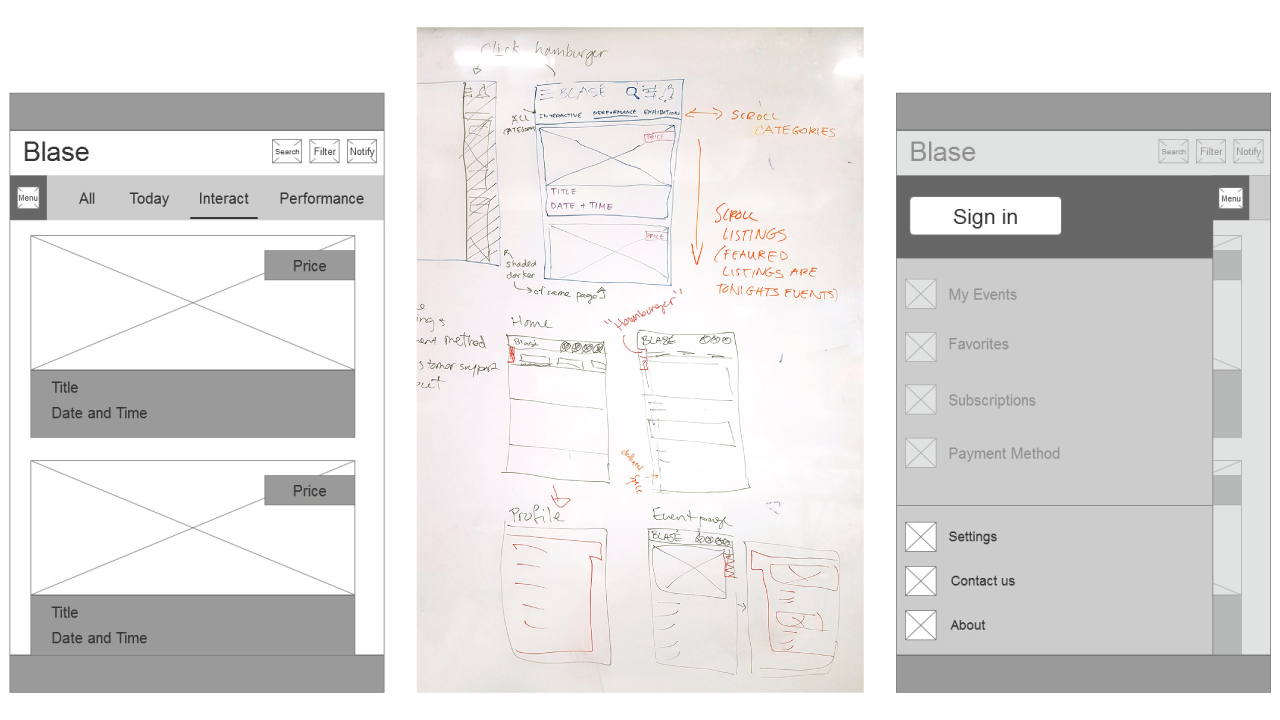 Blase
Search
Filter
Notify
Menu
All
Today
Interact
Performance
Price
Title
Date and Time
Price
Title
Date and Time
Click hamburger
BLASE
ALL
INTERACTIVE PERFORMANCE EXHIBITION
SCROLL
CATEGORIES
PRICE
TITLE
DATE + TIME
PRICE
SCROLL
LISTINGS
(FEAURED
LISTINGS ARE
TONIGHTS EVENTS)
shaded
darker
of same page
"Hamburger"
Home
Blase
BLASE
method
support
Profile
Event page
BLASE
Blase
Search
Filter
Notify
Sign in
Menu
My Events
Favorites
Subscriptions
Payment Method
Settings
Contact us
About